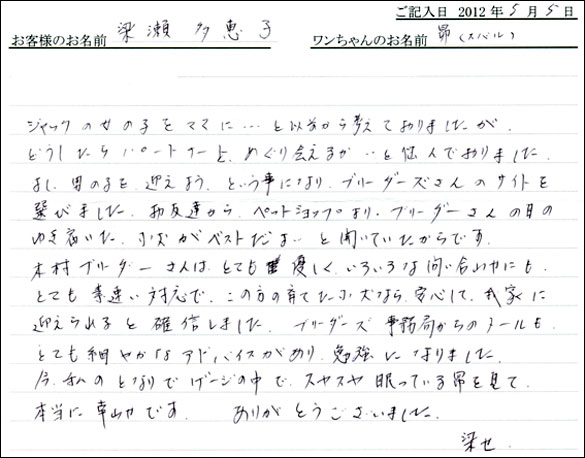 ご記入日 2012年5月5日
お客様のお名前 梁瀬 多恵子 ワンちゃんのお名前 昴(スバル)
ジャックの女の子をママに…と以前から考えておりましたが、
どうしたらパートナーと、めぐり会えるか…と悩んでおりました。
よし、男の子を迎えよう、という事になり、ブリーダーズさんのサイトを
選びました。お友達から、ペットショップより、ブリーダーさんの目の
ゆき届いた、小犬がベストだよ…と聞いていたからです。
木村ブリーダーさんは、とても優しく、いろいろな問い合わせにも、
とても素速い対応で、この方の育てた小犬なら、安心して、我家に
迎えられると確信しました。ブリーダーズ事務局からのメールも、
とても細やかなアドバイスがあり、勉強になりました。
今、私のとなりでゲージの中で、スヤスヤ眠っている昴を見て、
本当に幸せです。 ありがとうございました。
梁せ